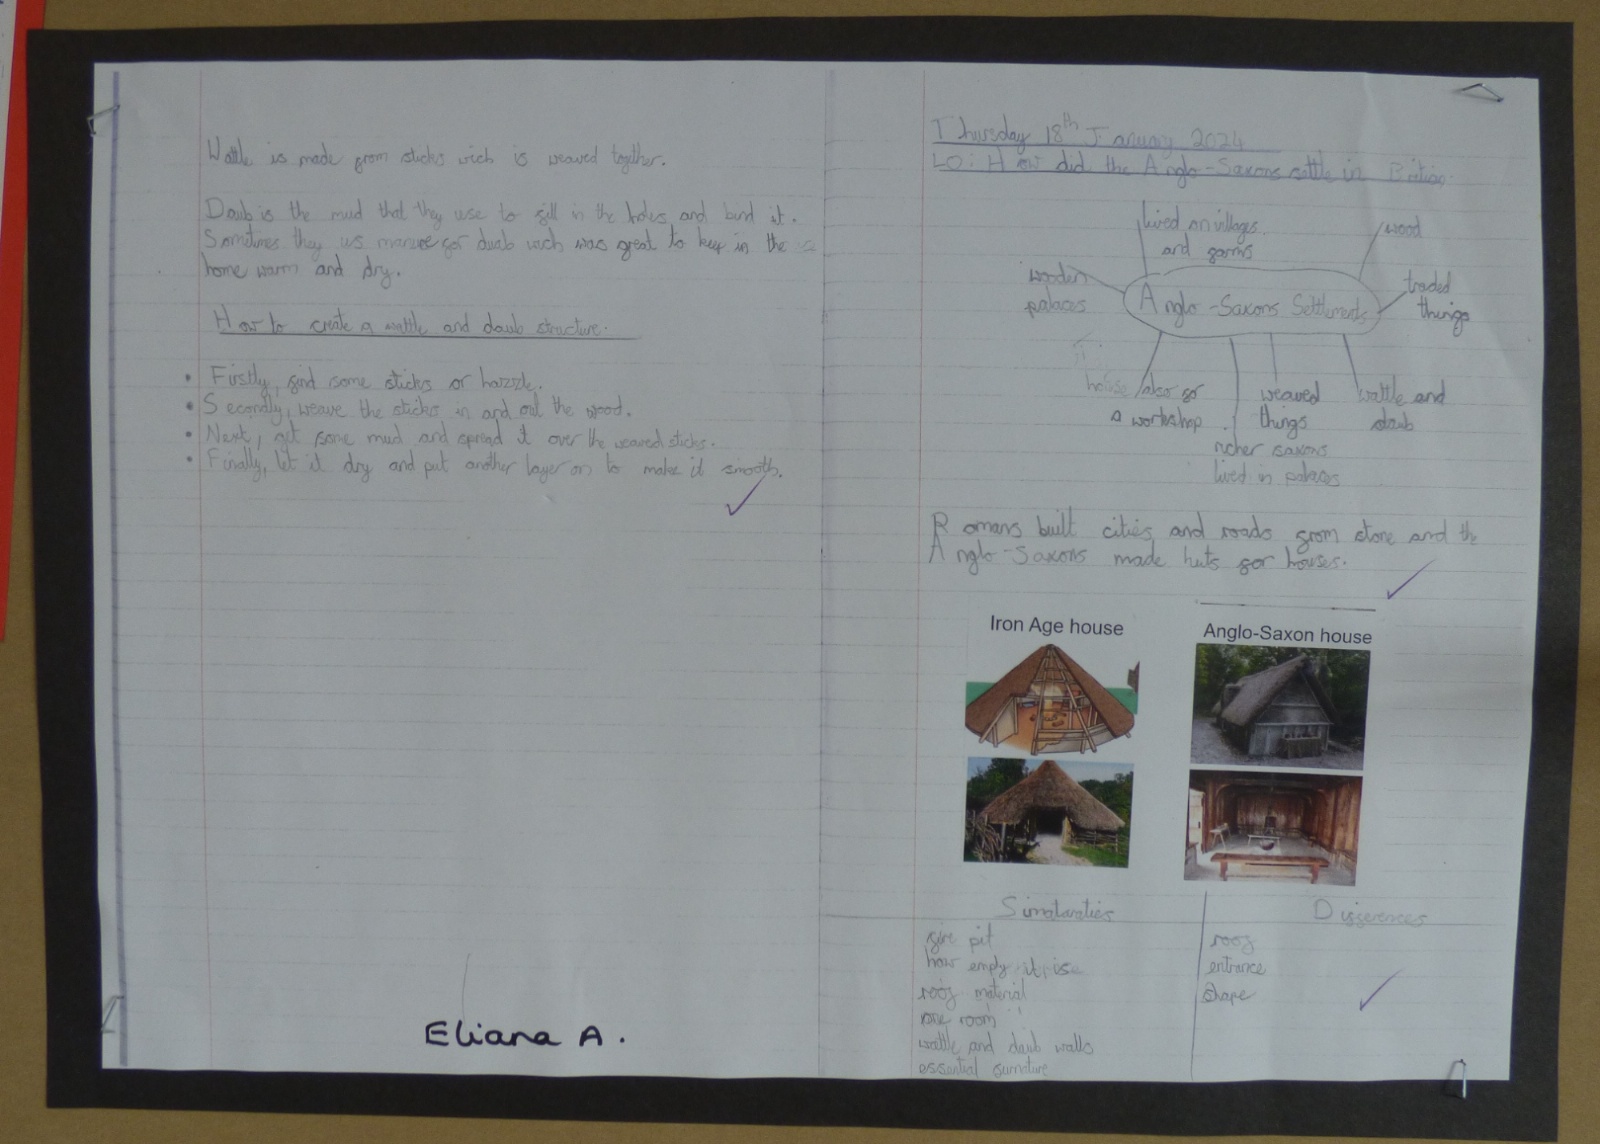 Wattle is made from sticks wich is weaved together.
Daub is the mud that they use to fill in the holes and bind it.
Sometimes they us manure for duab wich was great to keep in the
home warm and dry.
How to create a wattle and daub structure.
• Firstly, find some sticks or hazzle.
• Secondly, weave the sticks in and out the wood.
• Next, get some mud and spread it over the weaved sticks.
• Finally, let it dry and put another layer on to make it smooth.
Eliana A.
Thursday 18th January 2024
LO: How did the Anglo-Saxons settle in
lived on villages
and farms
wood
wooden
palaces
Anglo-Saxons Settlments
traded
things
house also for
a workshop
weaved
things
wattle and
daub
richer saxons
lived in palaces
Romans built cities and roads from stone and the
Anglo-Saxons made huts for houses.
Iron Age house
Anglo-Saxon house
Differences
fire pit
how empy it is
roof material
one room
wattle and daub walls
essential
roof
entrance
shape